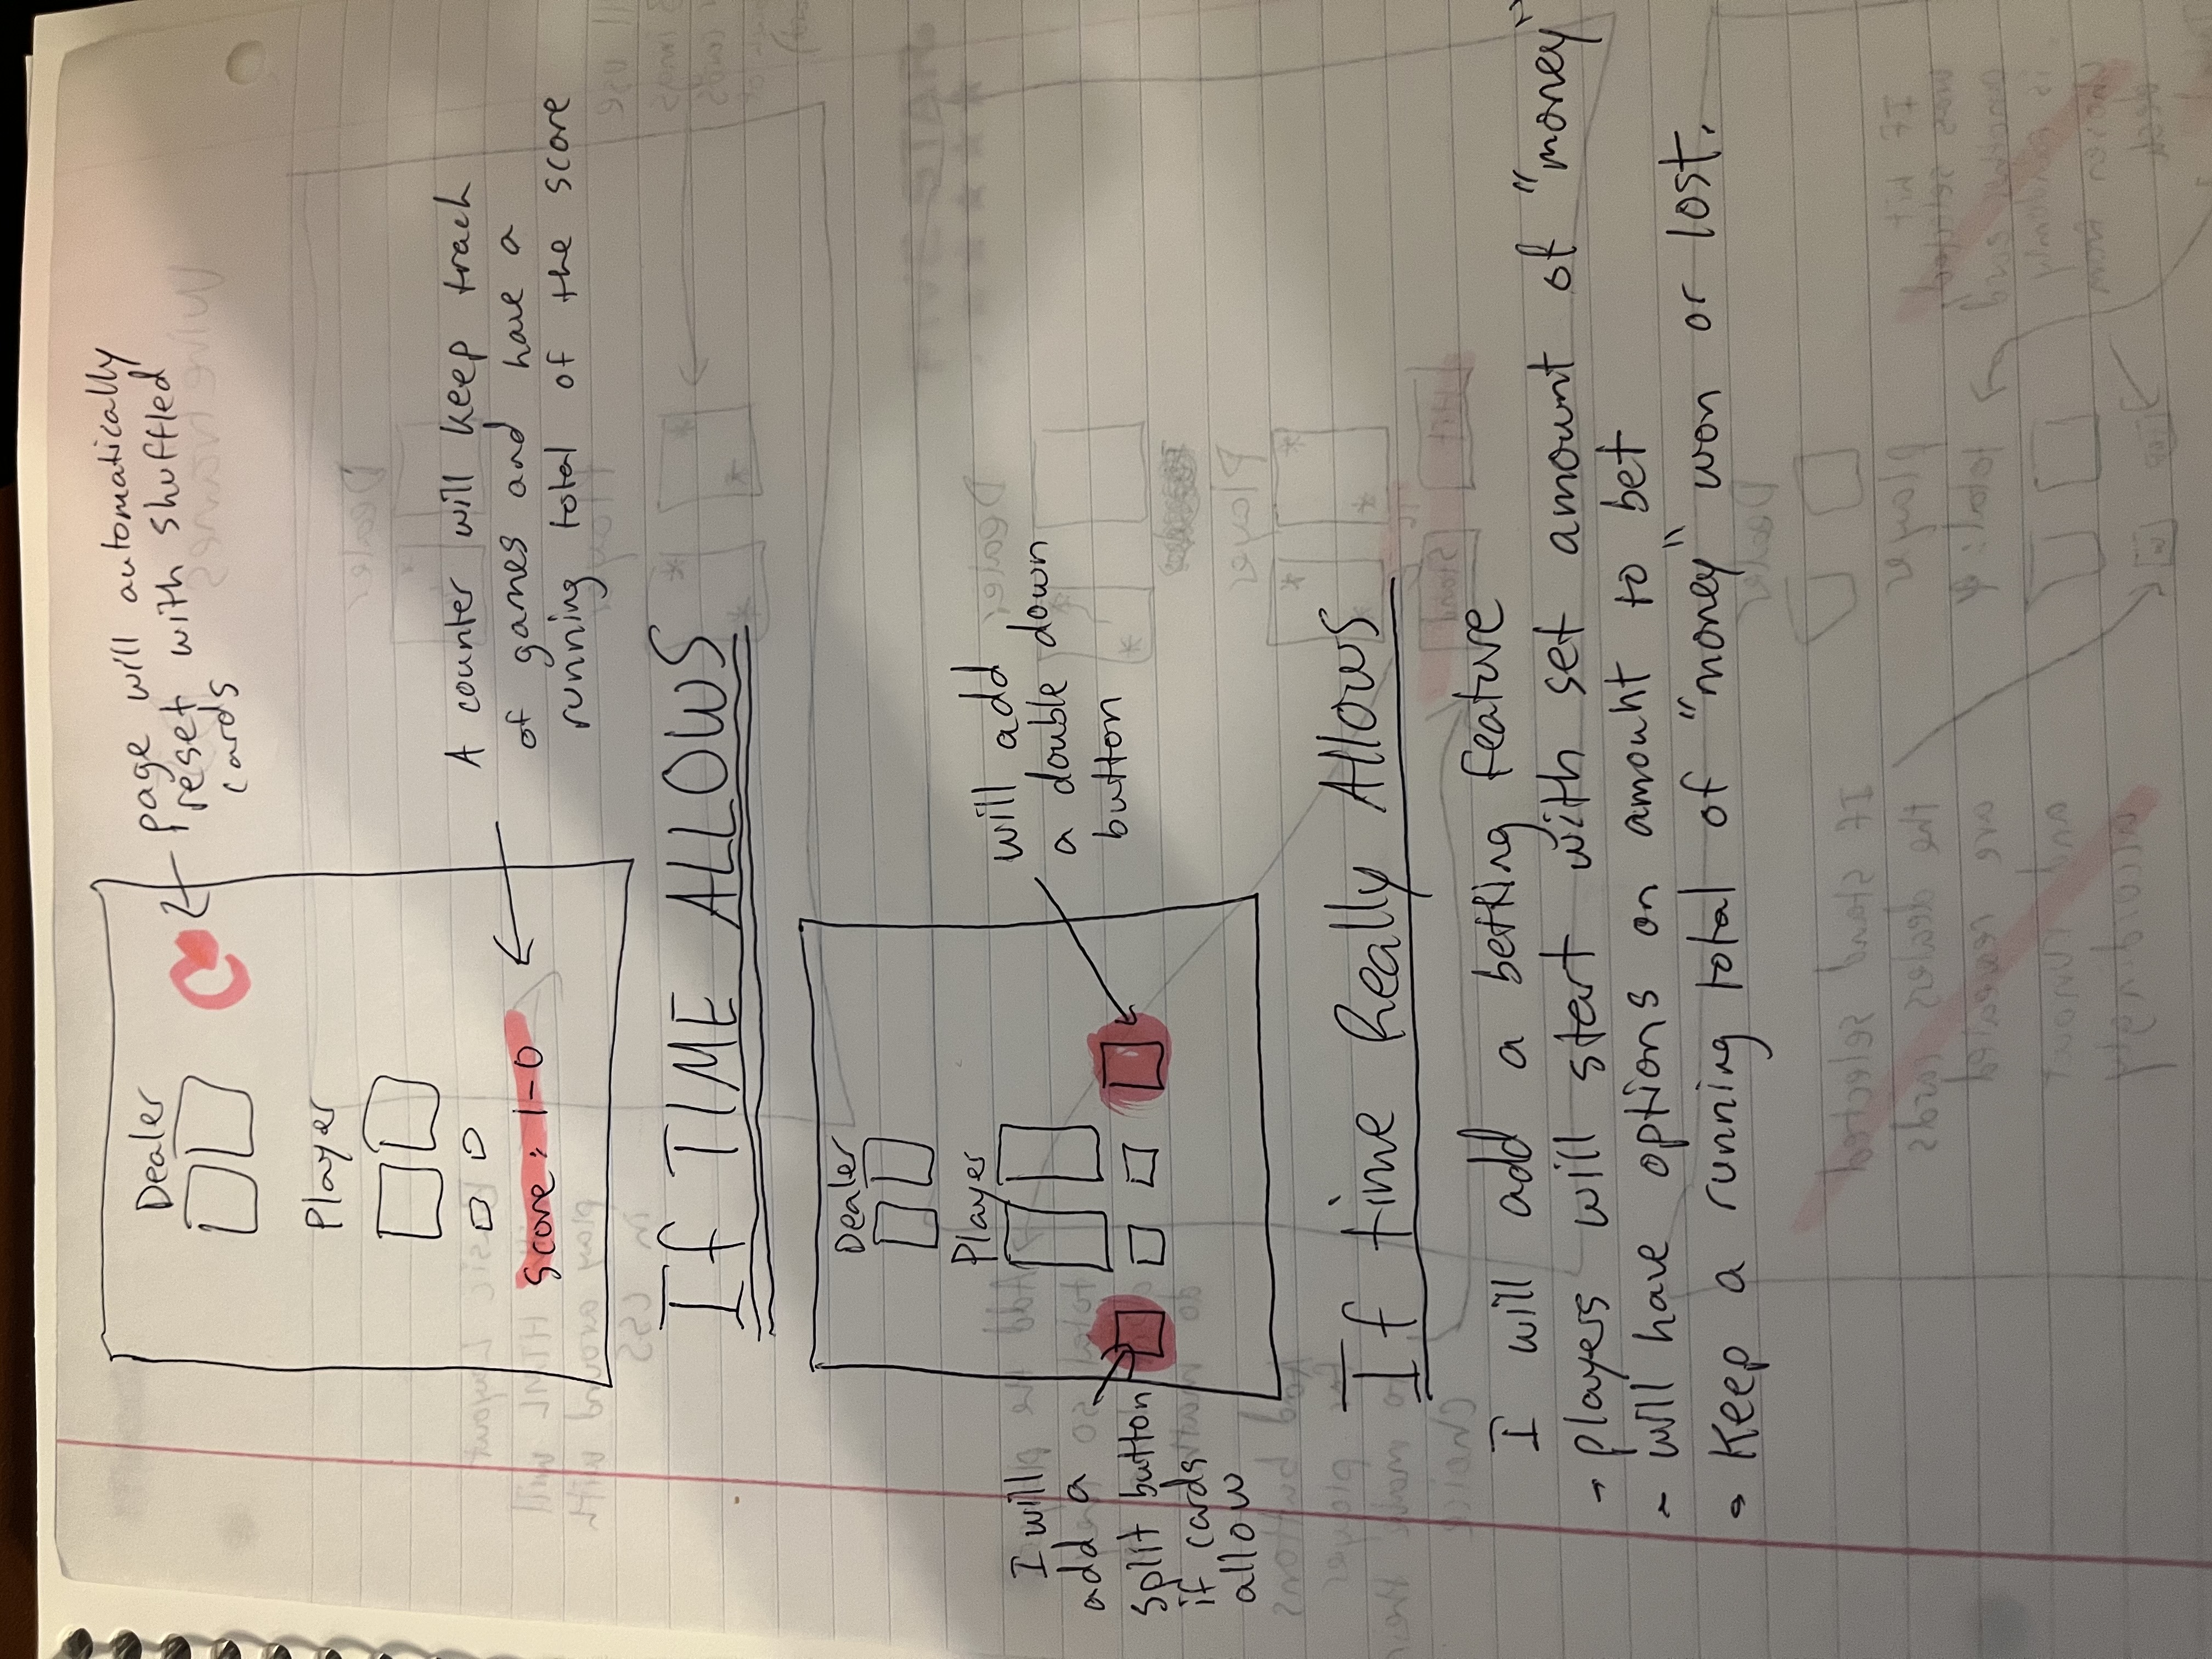 Dealer
page will automatically
reset with shuffled
cards
Player
A counter will keep track
of games and have a
running total of the score
Score: 1-0
If TIME ALLOWS
Dealer
Player
I will
add a
split button
if cards
allow
will add
a double down
button
If time Really Allows
I will add a betting feature
- players will start with set amount of "money"
- will have options on amount to bet
- Keep a running total of "money" won or lost.